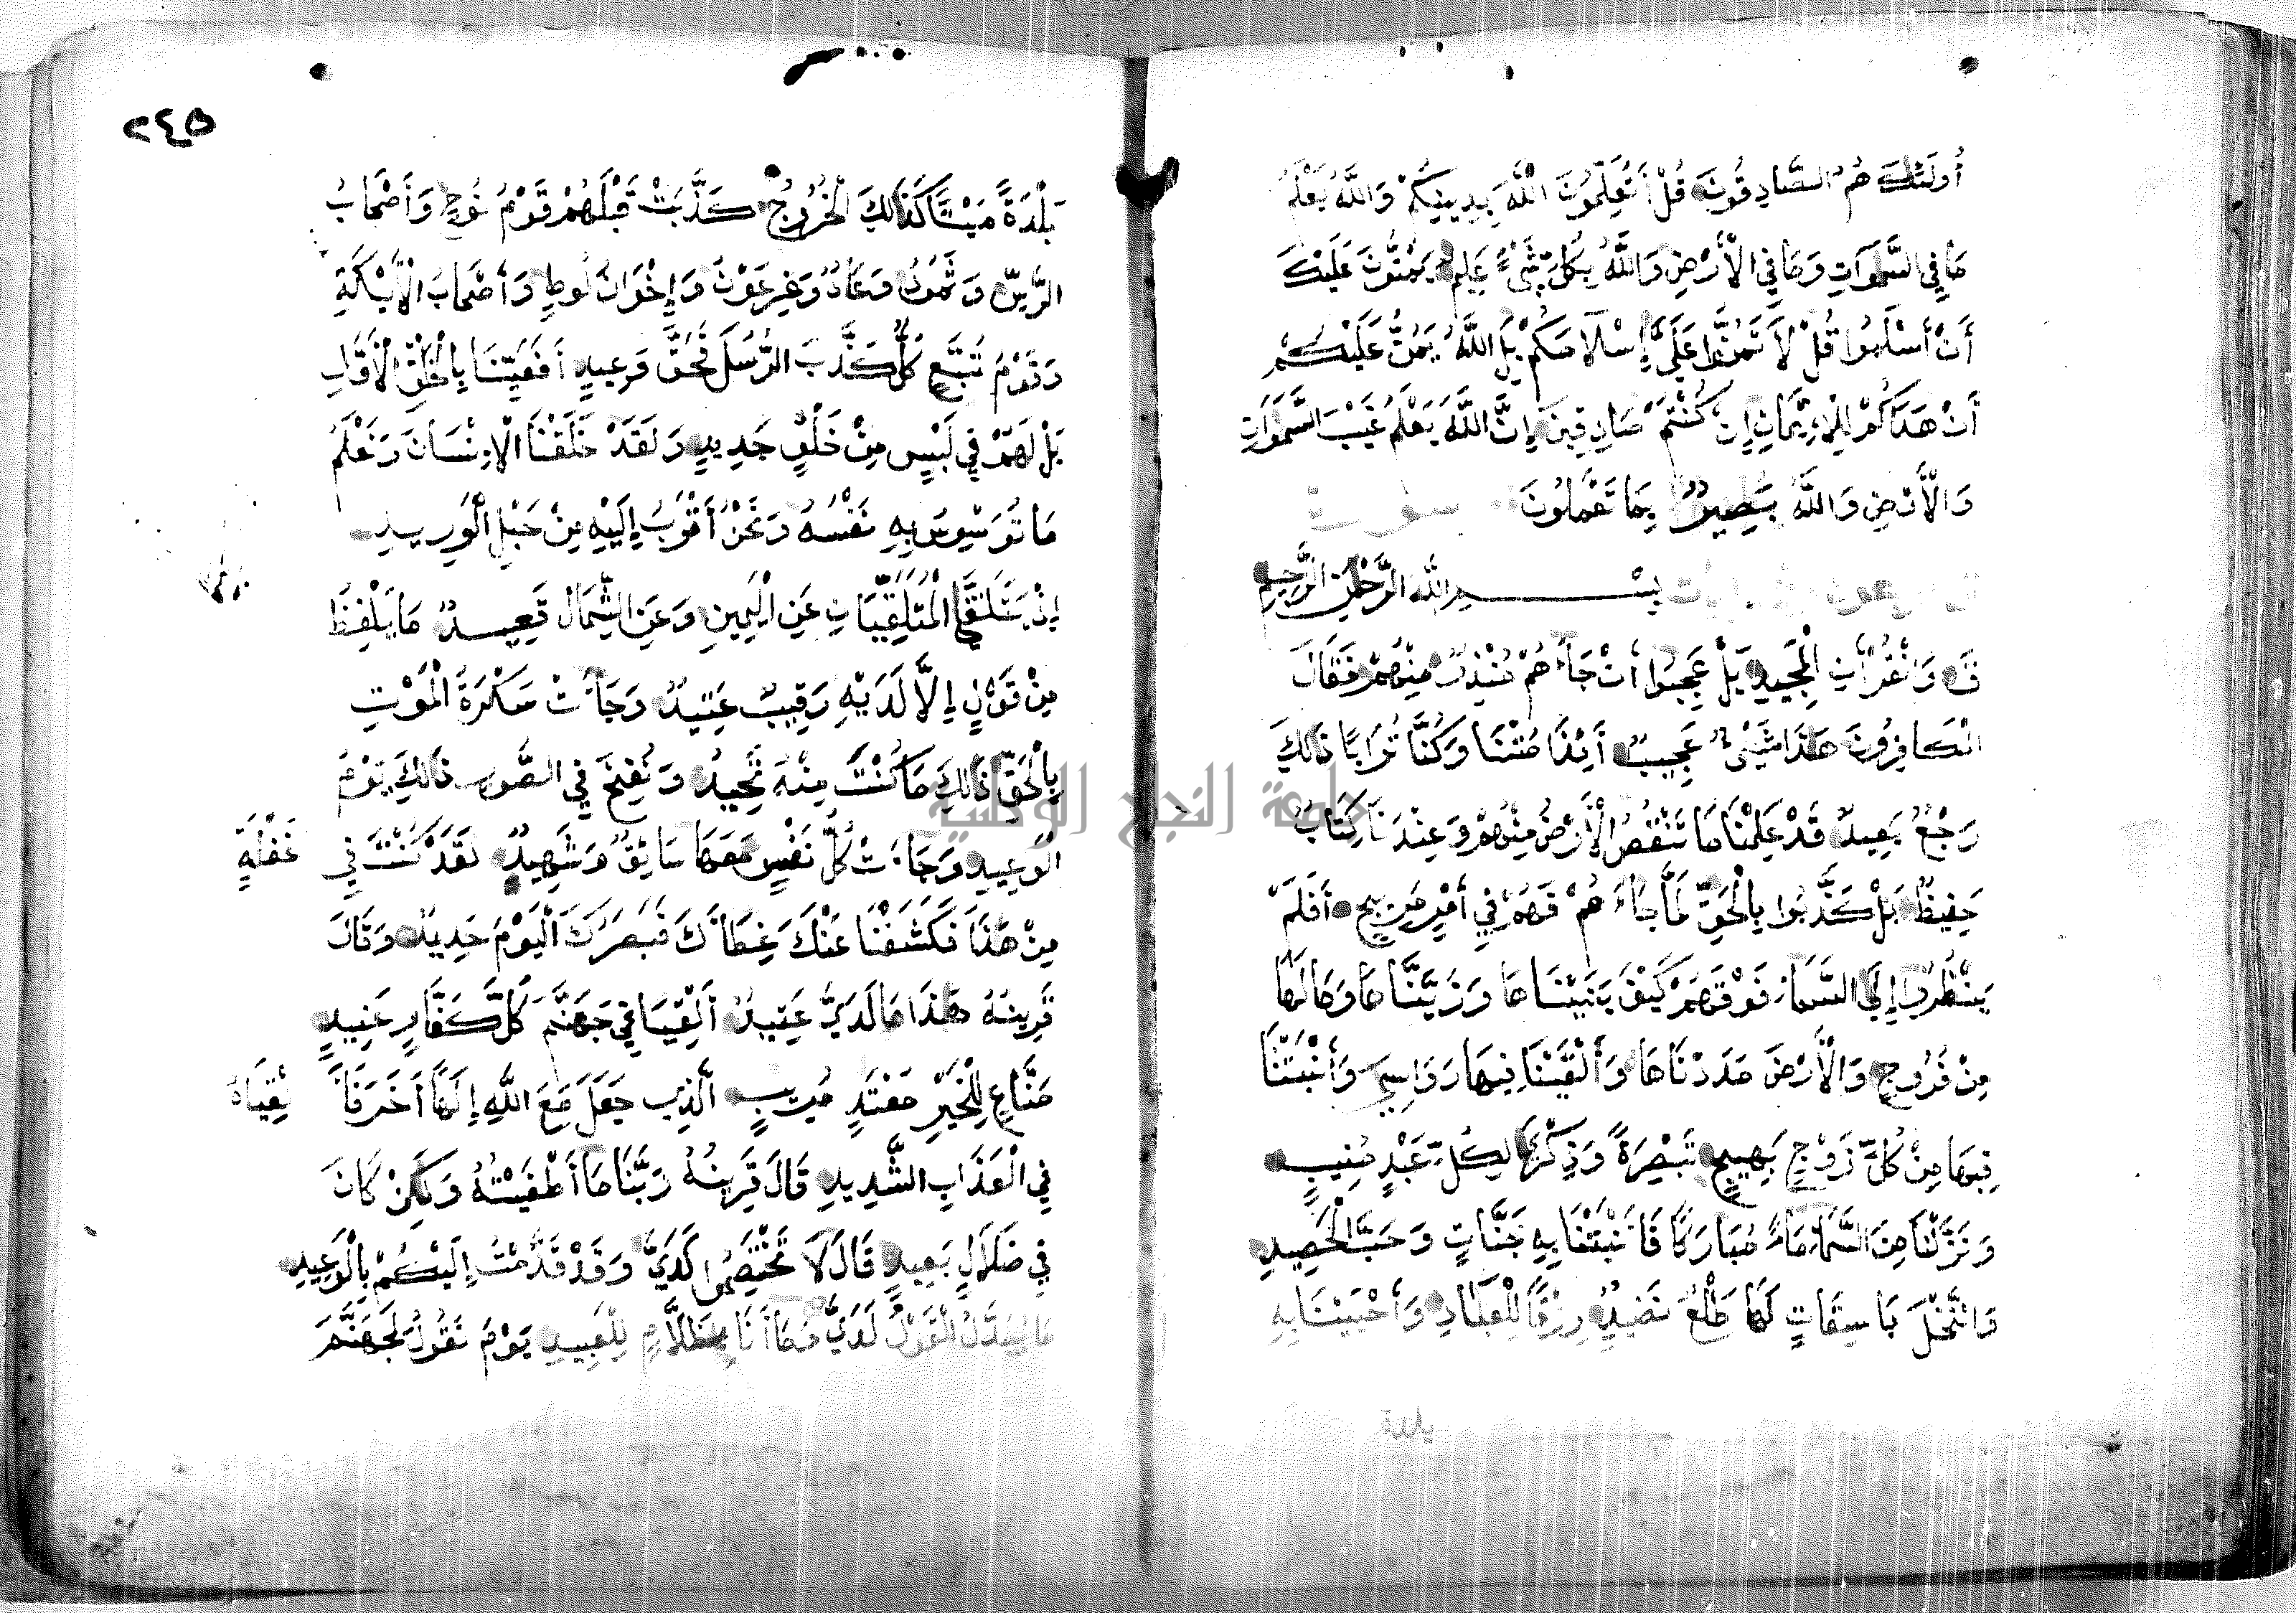 أُولَئِكَ هُمُ الصَّادِقُونَ قُلْ أَتُعَلِّمُونَ اللَّهَ بِدِينِكُمْ وَاللَّهُ يَعْلَمُ
مَا فِي السَّمَوَاتِ وَمَا فِي الْأَرْضِ وَاللَّهُ بِكُلِّ شَيْءٍ عَلِيمٌ يَمُنُّونَ عَلَيْكَ
أَنْ أَسْلَمُوا قُلْ لَا تَمُنُّوا عَلَيَّ إِسْلَامَكُمْ بَلِ اللَّهُ يَمُنُّ عَلَيْكُمْ
أَنْ هَدَاكُمْ لِلْإِيمَانِ إِنْ كُنْتُمْ صَادِقِينَ إِنَّ اللَّهَ يَعْلَمُ غَيْبَ السَّمَوَاتِ
وَالْأَرْضِ وَاللَّهُ بَصِيرٌ بِمَا تَعْمَلُونَ
بِسْمِ اللَّهِ الرَّحْمَنِ الرَّحِيمِ
قَ وَالْقُرْآنِ الْمَجِيدِ بَلْ عَجِبُوا أَنْ جَاءَهُمْ مُنْذِرٌ مِنْهُمْ فَقَالَ
الْكَافِرُونَ هَذَا شَيْءٌ عَجِيبٌ أَئِذَا مِتْنَا وَكُنَّا تُرَابًا ذَلِكَ
رَجْعٌ بَعِيدٌ قَدْ عَلِمْنَا مَا تَنْقُصُ الْأَرْضُ مِنْهُمْ وَعِنْدَنَا كِتَابٌ
حَفِيظٌ بَلْ كَذَّبُوا بِالْحَقِّ لَمَّا جَاءَهُمْ فَهُمْ فِي أَمْرٍ مَرِيجٍ أَفَلَمْ
يَنْظُرُوا إِلَى السَّمَاءِ فَوْقَهُمْ كَيْفَ بَنَيْنَاهَا وَزَيَّنَّاهَا وَمَا لَهَا
مِنْ فُرُوجٍ وَالْأَرْضَ مَدَدْنَاهَا وَأَلْقَيْنَا فِيهَا رَوَاسِيَ وَأَنْبَتْنَا
فِيهَا مِنْ كُلِّ زَوْجٍ بَهِيجٍ تَبْصِرَةً وَذِكْرَى لِكُلِّ عَبْدٍ مُنِيبٍ
وَنَزَّلْنَا مِنَ السَّمَاءِ مَاءً مُبَارَكًا فَأَنْبَتْنَا بِهِ جَنَّاتٍ وَحَبَّ الْحَصِيدِ
وَالنَّخْلَ بَاسِقَاتٍ لَهَا طَلْعٌ نَضِيدٌ رِزْقًا لِلْعِبَادِ وَأَحْيَيْنَا بِهِ
بلدة
٢٤٥
بَلْدَةً مَيْتًا كَذَلِكَ الْخُرُوجُ كَذَّبَتْ قَبْلَهُمْ قَوْمُ نُوحٍ وَأَصْحَابُ
الرَّسِّ وَثَمُودُ وَعَادٌ وَفِرْعَوْنُ وَإِخْوَانُ لُوطٍ وَأَصْحَابُ الْأَيْكَةِ
وَقَوْمُ تُبَّعٍ كُلٌّ كَذَّبَ الرُّسُلَ فَحَقَّ وَعِيدِ أَفَعَيِينَا بِالْخَلْقِ الْأَوَّلِ
بَلْ هُمْ فِي لَبْسٍ مِنْ خَلْقٍ جَدِيدٍ وَلَقَدْ خَلَقْنَا الْإِنْسَانَ وَنَعْلَمُ
مَا تُوَسْوِسُ بِهِ نَفْسُهُ وَنَحْنُ أَقْرَبُ إِلَيْهِ مِنْ حَبْلِ الْوَرِيدِ
إِذْ يَتَلَقَّى الْمُتَلَقِّيَانِ عَنِ الْيَمِينِ وَعَنِ الشِّمَالِ قَعِيدٌ مَا يَلْفِظُ
مِنْ قَوْلٍ إِلَّا لَدَيْهِ رَقِيبٌ عَتِيدٌ وَجَاءَتْ سَكْرَةُ الْمَوْتِ
بِالْحَقِّ ذَلِكَ مَا كُنْتَ مِنْهُ تَحِيدُ وَنُفِخَ فِي الصُّورِ ذَلِكَ يَوْمُ
الْوَعِيدِ وَجَاءَتْ كُلُّ نَفْسٍ مَعَهَا سَائِقٌ وَشَهِيدٌ لَقَدْ كُنْتَ فِي غَفْلَةٍ
مِنْ هَذَا فَكَشَفْنَا عَنْكَ غِطَاءَكَ فَبَصَرُكَ الْيَوْمَ حَدِيدٌ وَقَالَ
قَرِينُهُ هَذَا مَا لَدَيَّ عَتِيدٌ أَلْقِيَا فِي جَهَنَّمَ كُلَّ كَفَّارٍ عَنِيدٍ
مَنَّاعٍ لِلْخَيْرِ مُعْتَدٍ مُرِيبٍ الَّذِي جَعَلَ مَعَ اللَّهِ إِلَهًا آخَرَ فَأَلْقِيَاهُ
فِي الْعَذَابِ الشَّدِيدِ قَالَ قَرِينُهُ رَبَّنَا مَا أَطْغَيْتُهُ وَلَكِنْ كَانَ
فِي ضَلَالٍ بَعِيدٍ قَالَ لَا تَخْتَصِمُوا لَدَيَّ وَقَدْ قَدَّمْتُ إِلَيْكُمْ بِالْوَعِيدِ
مَا يُبَدَّلُ الْقَوْلُ لَدَيَّ وَمَا أَنَا بِظَلَّامٍ لِلْعَبِيدِ يَوْمَ نَقُولُ لِجَهَنَّمَ
جامعة النجاح الوطنية